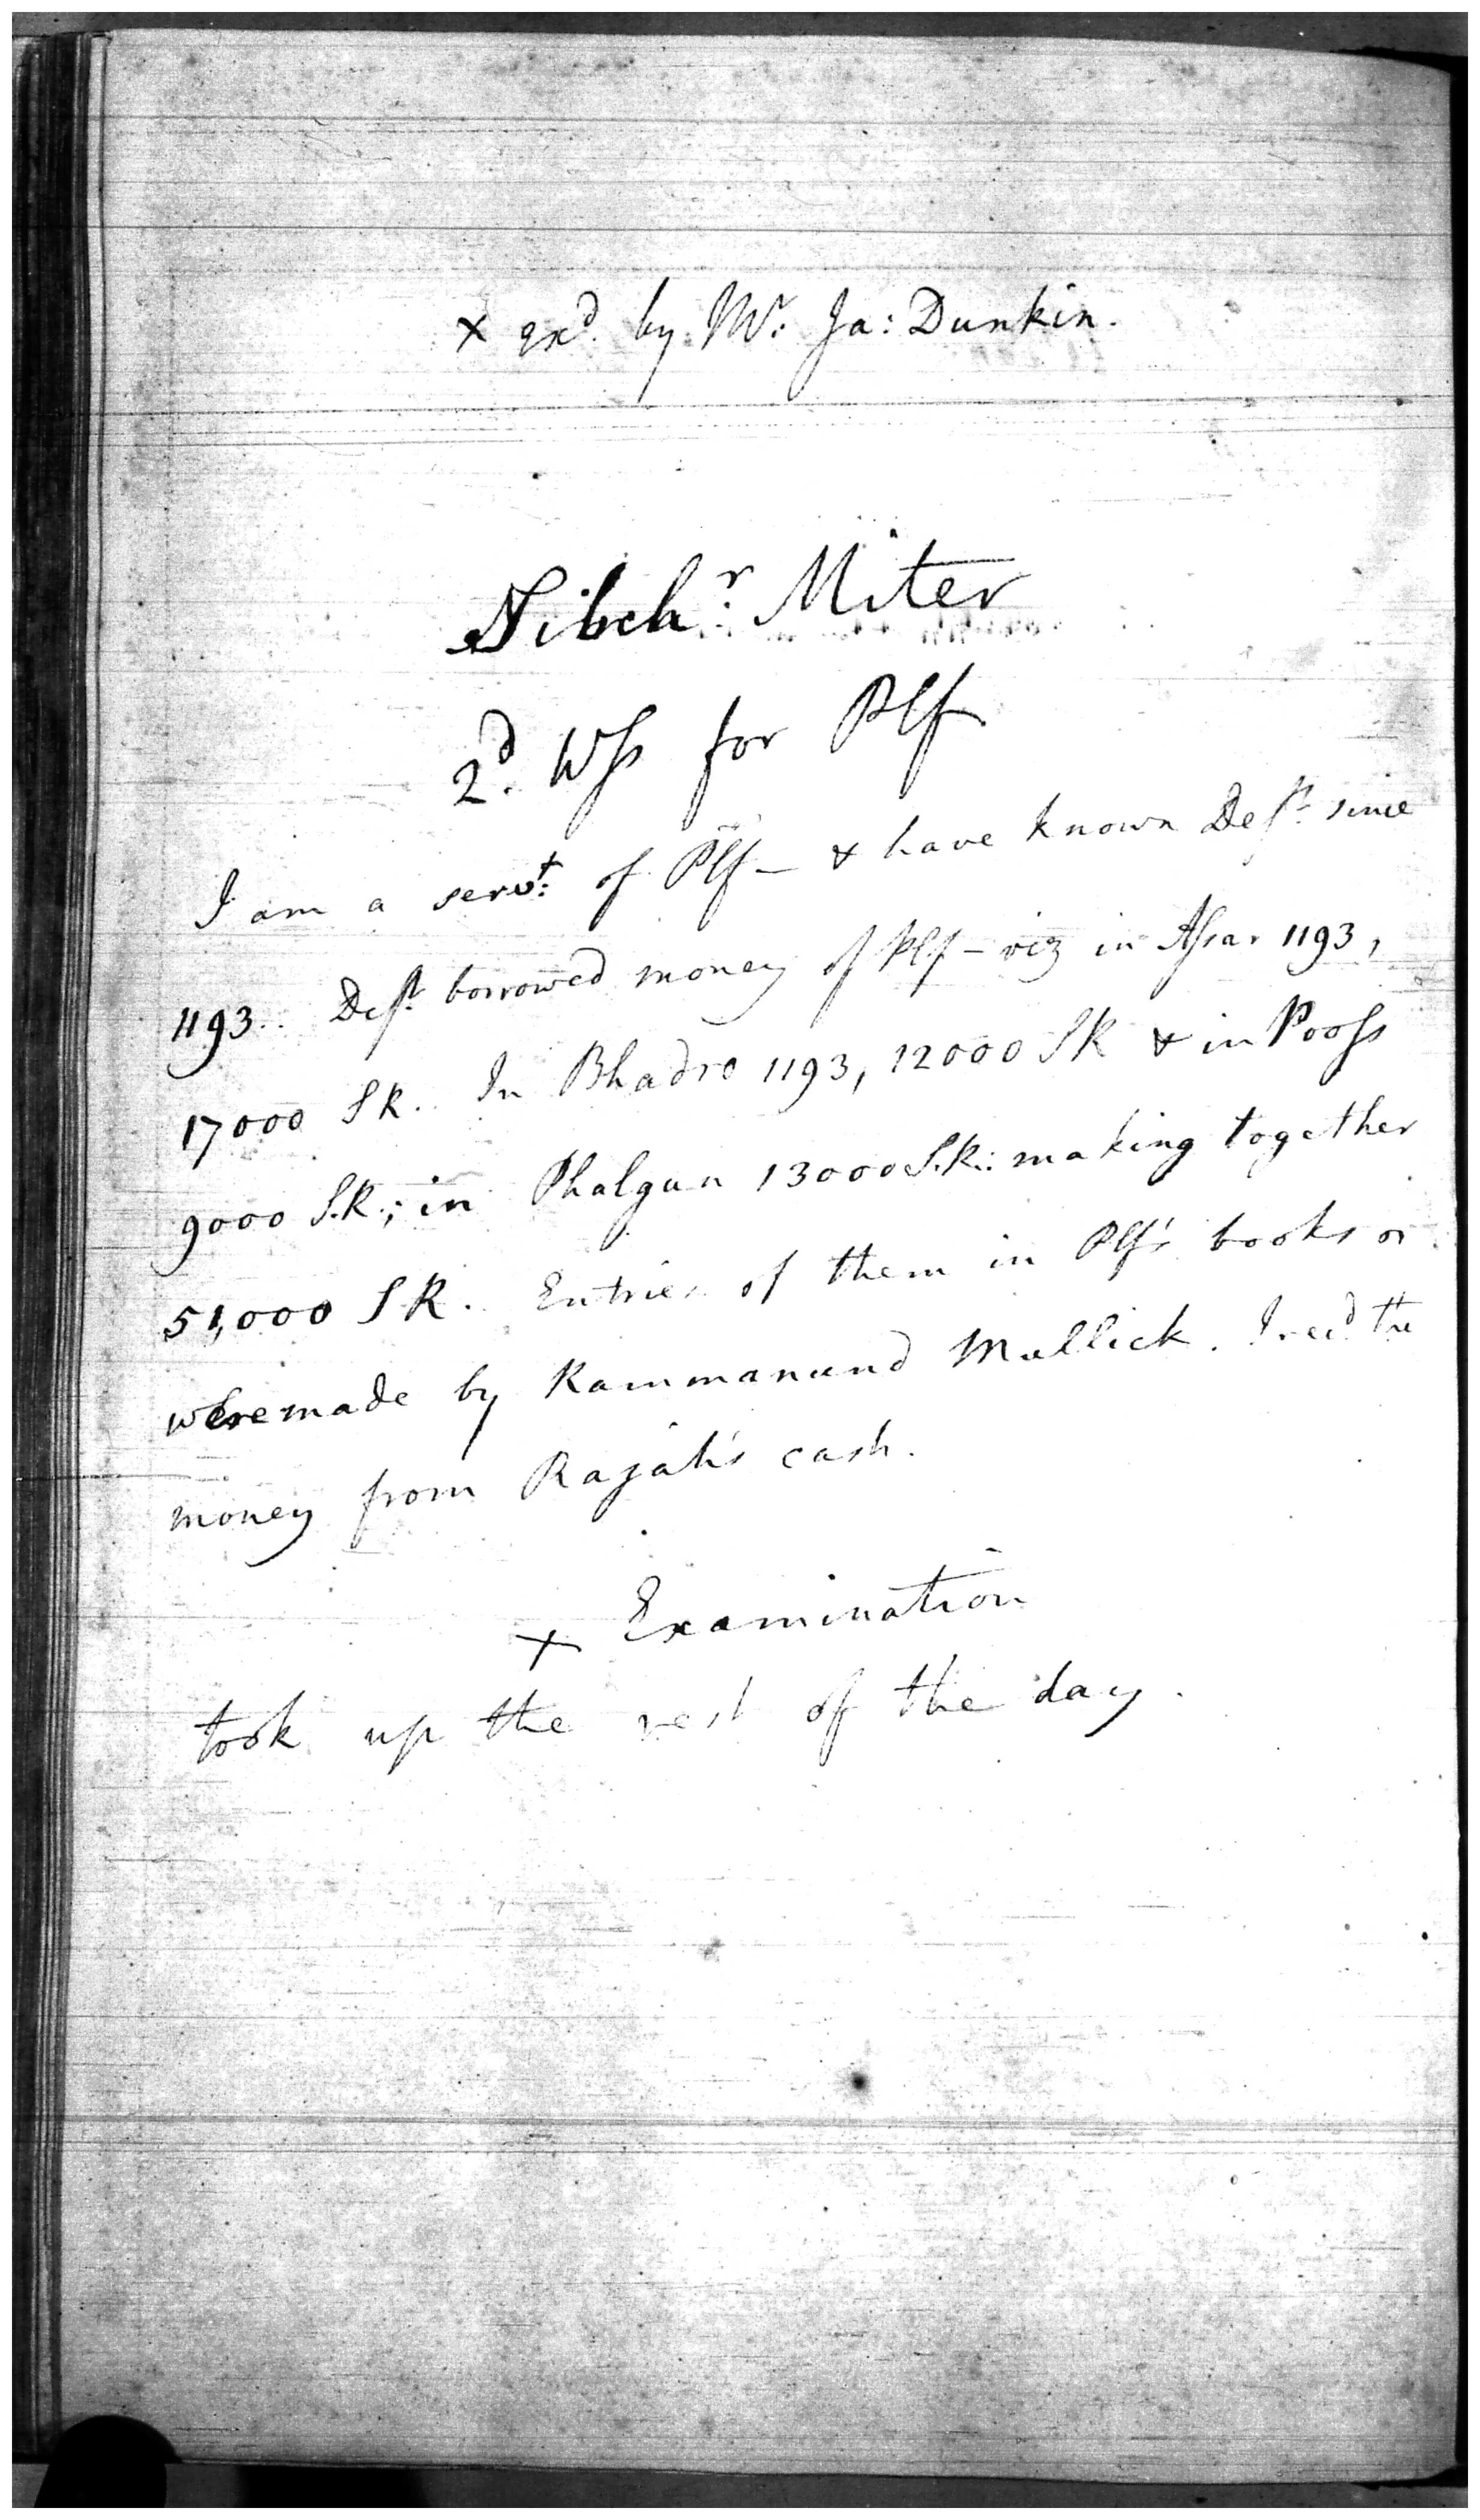 x exd. by Mr: Ja: Dunkin.
Sibchr: Miter
2d. Wss for Plf
I am a servt: of Plf – & have known Deft. since
1193.. Deft. borrowed money of Plf – viz in Assar 1193,
17000 SR.. In Bhadro 1193, 12000 SR & in Pooss
9000 S.R.; in Phalgun 13000 S.R.: making together
51,000 SR. Entries of them in Plf's books
were made by Rammanund Mullick. I recd the
money from Rajah's cash.
x Examination
took up the rest of the day.